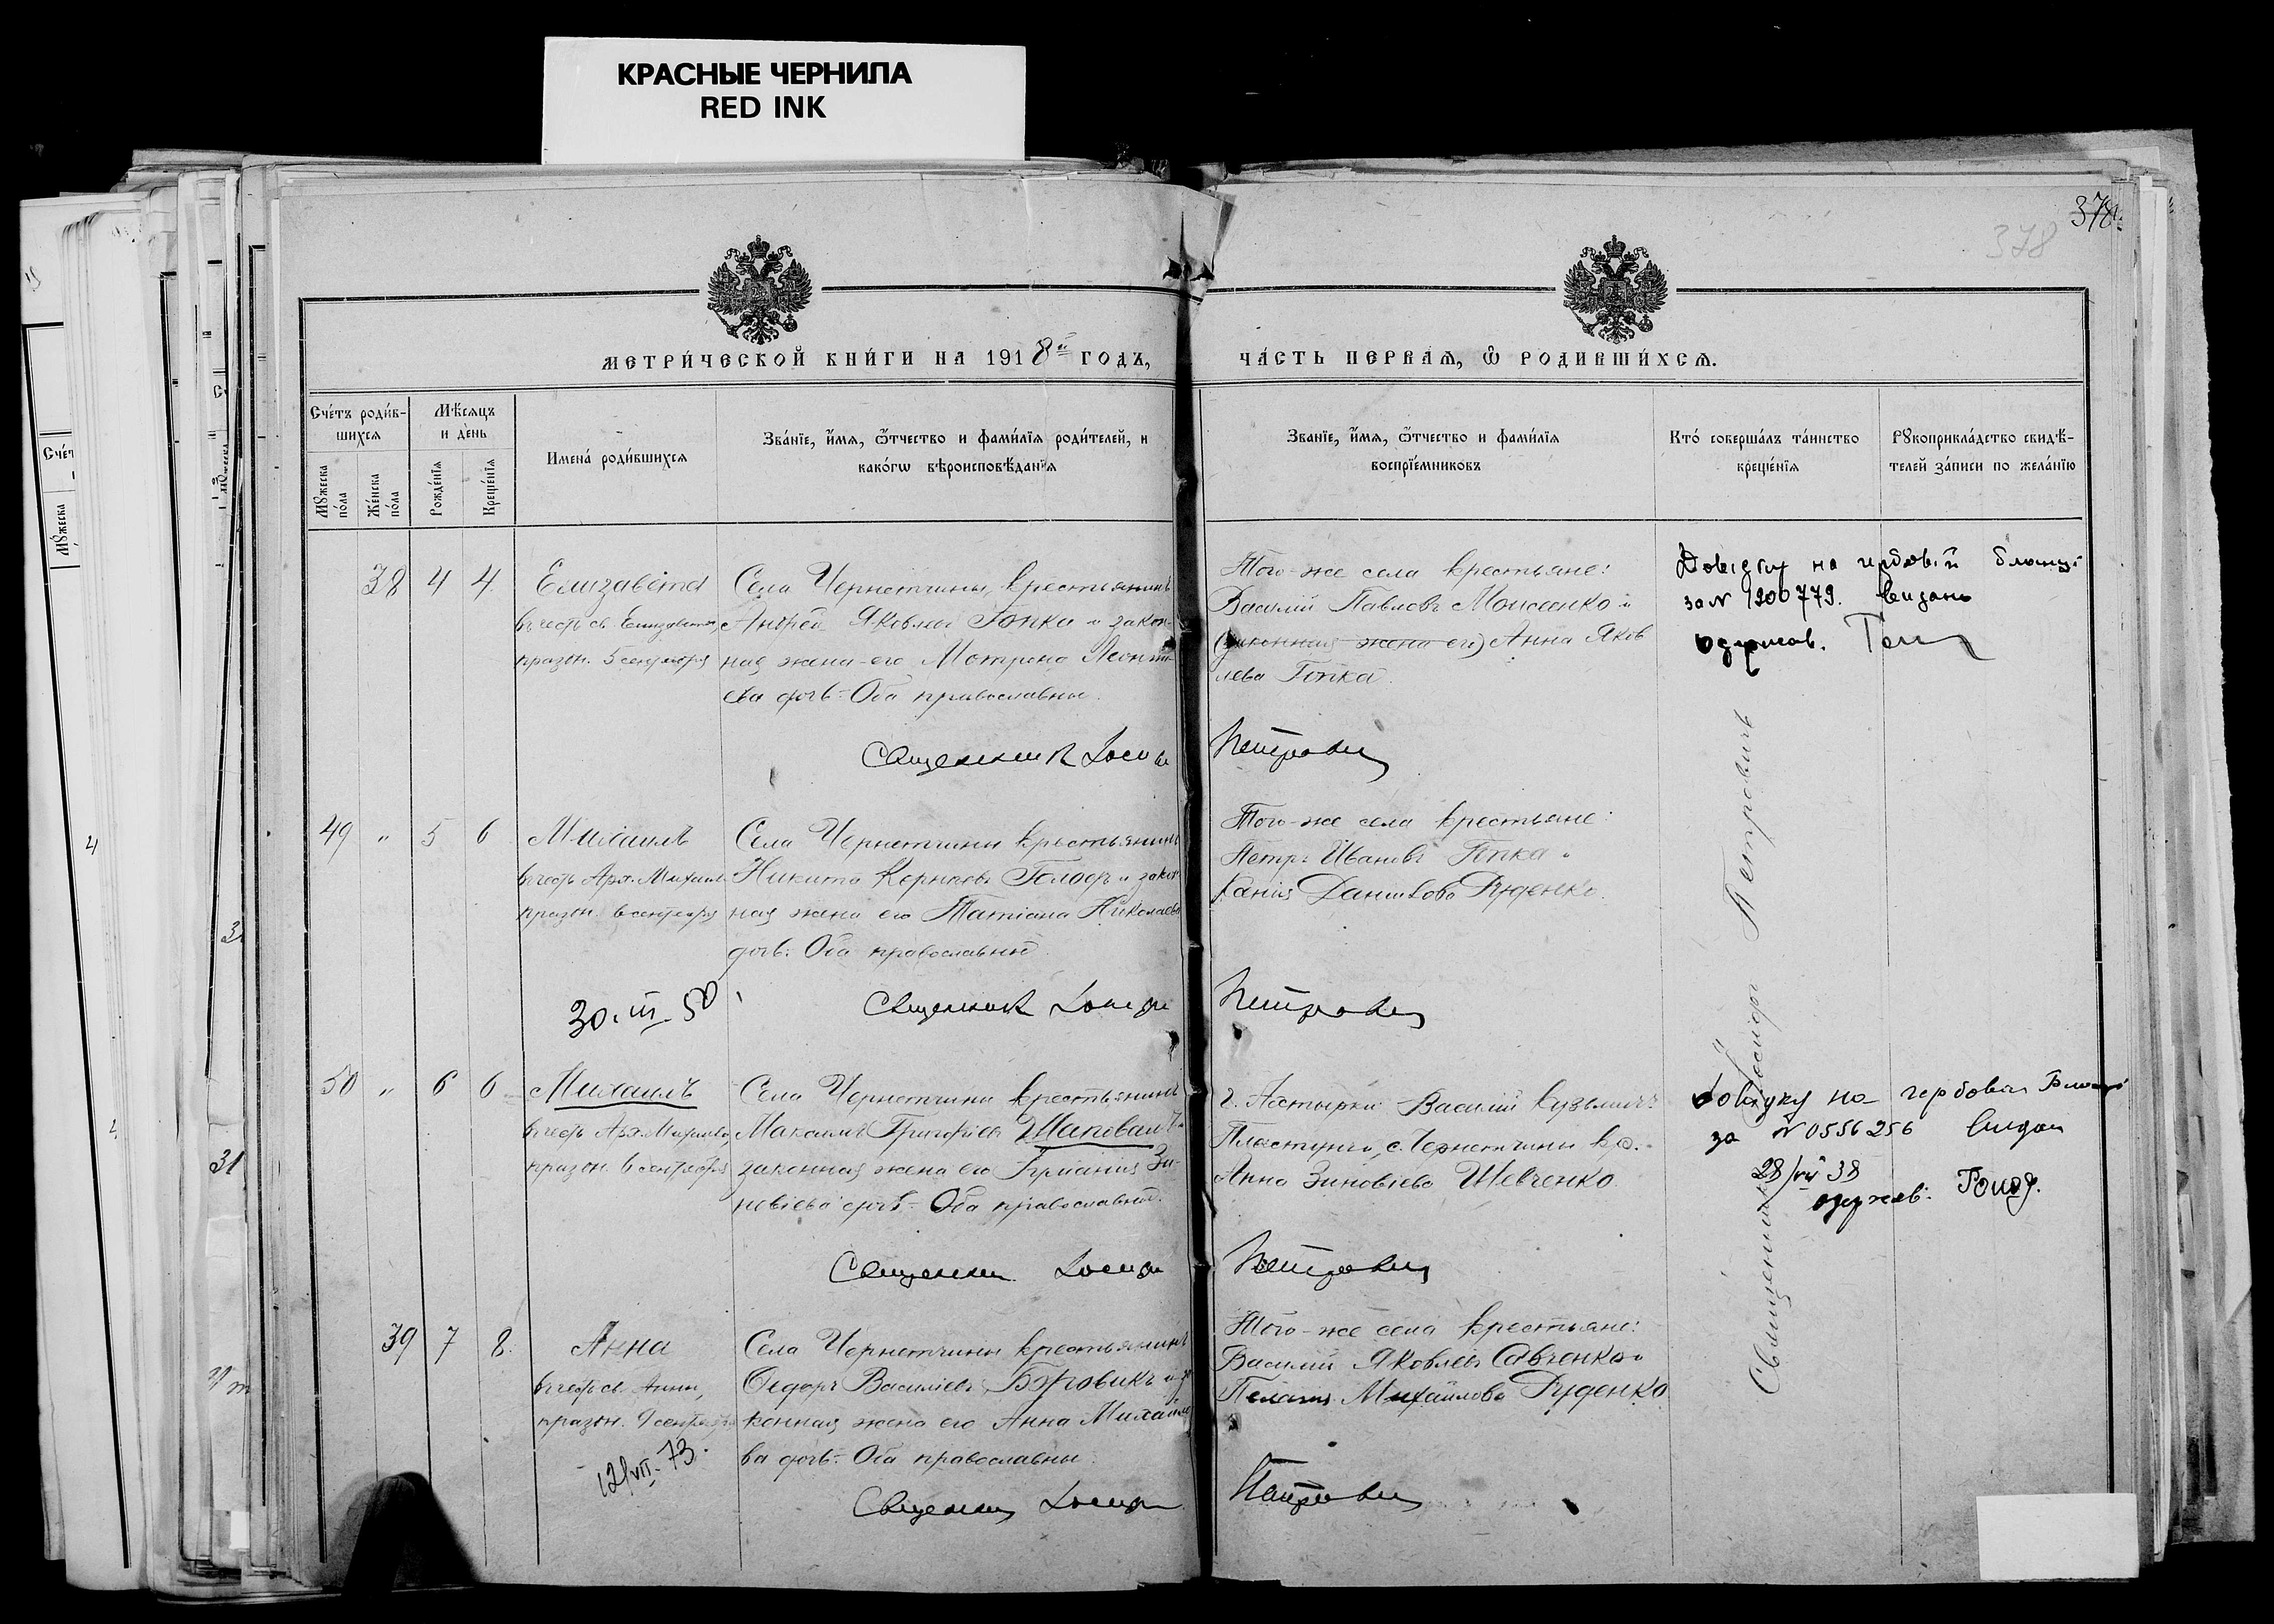 КРАСНЫЕ ЧЕРНИЛА
RED INK
378
378
МЕТРИ́ЧЕСКОЙ КНИ́ГИ НА 1918й ГОДЪ,
ЧА́СТЬ ПЕРВАѦ, Ѽ РОДИВШИ́ХСѦ.
Сче́тъ роди́в-
шихсѧ
Мѣ́сѧцъ
и де́нь
Мꙋ́жеска
по́ла
Же́нска
по́ла
Рожде́нїѧ
Креще́нїѧ
Имена́ роди́вшихсѧ
Зва́нїе, и҆́мѧ, ѻ҆́тчество и фами́лїѧ роди́телей, и
како́гѡ вѣроисповѣ́данїѧ
Зва́нїе, и҆́мѧ, ѻ҆́тчество и фами́лїѧ
воспрїе́мниковъ
Кто́ соверша́лъ та́инство
креще́нїѧ
Рꙋкоприкла́дство свидѣ́-
телей за́писи по жела́нїю
38 4 4
Елизавета
въ честь св. Елизаветы,
праздн. 5 сентября
Села Чернетчины, крестьянинъ
Андрей Яковлевъ Гопка и закон-
ная жена его Матрона Леонти-
ева дочь. Оба православные.
Священник Иосиф
Того-же села крестьяне:
Василий Павловъ Моисеенко и
(законная жена его) Анна Яков
лева Гопка.
Петрович
Довідку на гербовій бланці
за N 1200779. видано
одержав.
49 " 5 6
Михаилъ
въ честь Арх. Михаила
праздн. 6 сентября
Села Чернетчины крестьянинъ
Никита Корнѣевъ Голодъ и закон
ная жена его Татіана Николаева
дочь. Оба православные.
30. III. 50
Священник Иосиф
Того-же села крестьяне:
Петръ Ивановъ Гопка и
Данилова Руденко.
Петрович
50 " 6 6
Михаилъ
въ честь Арх. Михаила,
праздн. 6 сентября
Села Чернетчины крестьянинъ
Максимъ Григорьевъ Шаповалъ и
законная жена его Иріанія Зи-
новіева дочь. Оба православные.
Священник Иосиф
г. Ахтырки Василий Кузьмичъ
с. Чернетчины кр.
Анна Зиновіева Шевченко.
Петрович
Довідку на гербовій бланці
за N 0556256 видан
28/VII 38
одержав.
39 7 8
Анна
въ честь св. Анны,
праздн. 9 сентября
12/VII-73.
Села Чернетчины крестьянинъ
Ѳедоръ Василіевъ Боровикъ и за
конная жена его Анна Михайло
ва дочь. Оба православные.
Священник Иосиф
Того-же села крестьяне:
Василий Яковлевъ Савченко и
Пелагия Михайлова Руденко.
Петрович
Священникъ Іосифъ Петровичъ